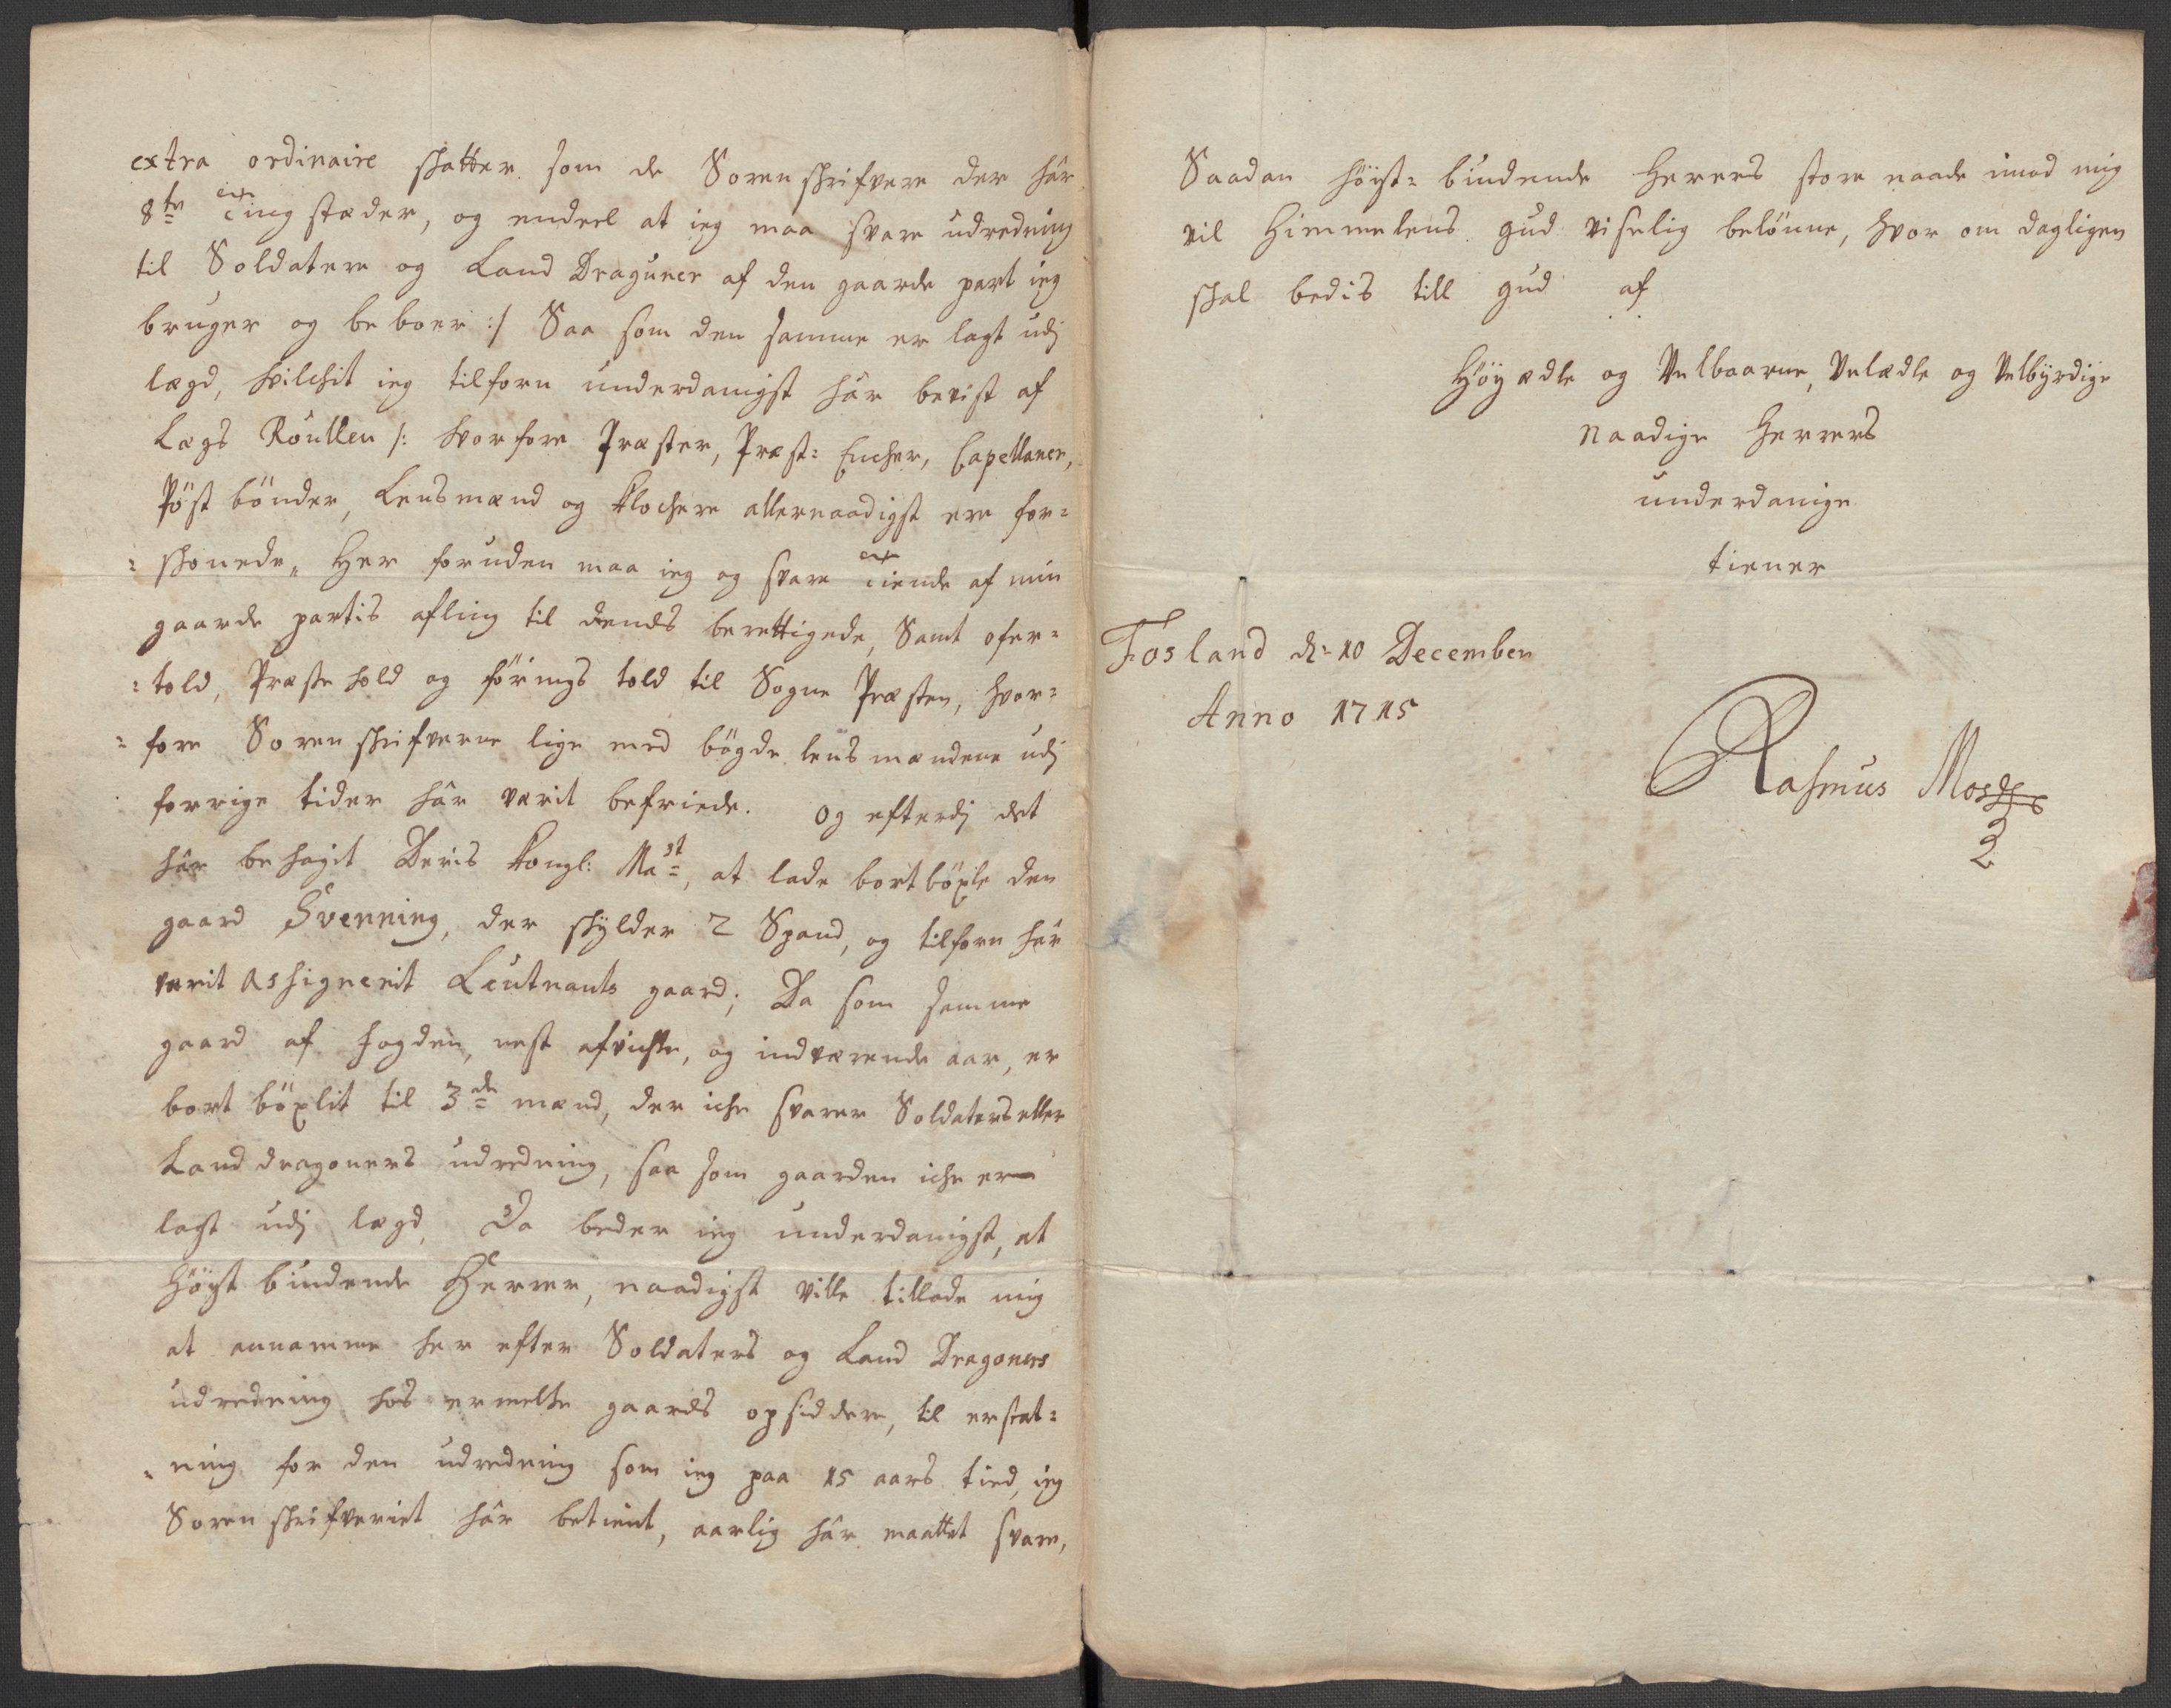 extra ordinaire skatter som de Soren skrifvere der hâr
8te Ting stæder, og endeel at ieg maa svare udredning
til Soldatere og Land Draguner af den gaarde part ieg
bruger og beboer :/ Saa som den samme er lagt udj
lægd, hvilchit ieg tilforn underdanigst hâr bevist af
Lægs Roullen /: hvorfore Præster, Præst= Encher, Capellaner,
Post bönder, Lensmænd og Klochere allernaadigst ere for=
= skonede, Her foruden maa ieg og svare Tiende af min
gaarde partis afling til dends berettigede, Samt ofer=
= told, Præste hold og förings told til Sogne Præsten, hvor=
= fore Soren skrifverne lige med bögde lens mændene udj
forrige tider hâr værit befriede. og efterdj det
hâr behagit Deris Kongl: Mast, at lade bortböxle den
gaard Svenning, der skylder 2 Spand, og tilforn hâr
værit Assignerit Leutnants gaard; Da som samme
gaard af fogden, nest afvichte, og indværende aar, er
bort böxlit til 3de mænd, der iche svarer Soldaters eller
Land dragoners udredning, saa som gaarden iche er
lagt udj lægd, Da beder ieg underdanigst, at
höyst bindende Herrer, naadigst ville tillade mig
at annamme her efter Soldaters og Land Dragoners
udredning hos ermelte gaards opsiddere, til erstat=
= ning for den udredning som ieg paa 15 aars tied, ieg
Soren skrifveriet hâr betient, aarlig hâr maattet svare,
Saadan höyst= bindende Herrers store naade imod mig
vil Himmelens gud viselig belönne, hvor om dagligen
skal bedis till gud af
Höyædle og Velbaarne, Velædle og Velbyrdige
Naadige Herrers
underdanige
tiener
Fosland d: 10 December
Anno 1715
Rasmus